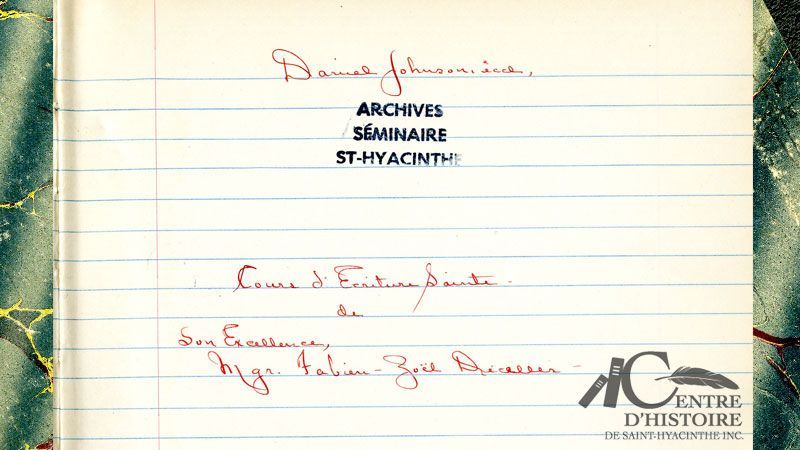 Daniel Johnson, eccl,
ARCHIVES
SÉMINAIRE
ST-HYACINTHE
Cours d'Ecriture Sainte -
de
Son Excellence,
Mgr. Fabien-Zoël Decelles -
CENTRE
D'HISTOIRE
DE SAINT-HYACINTHE INC.